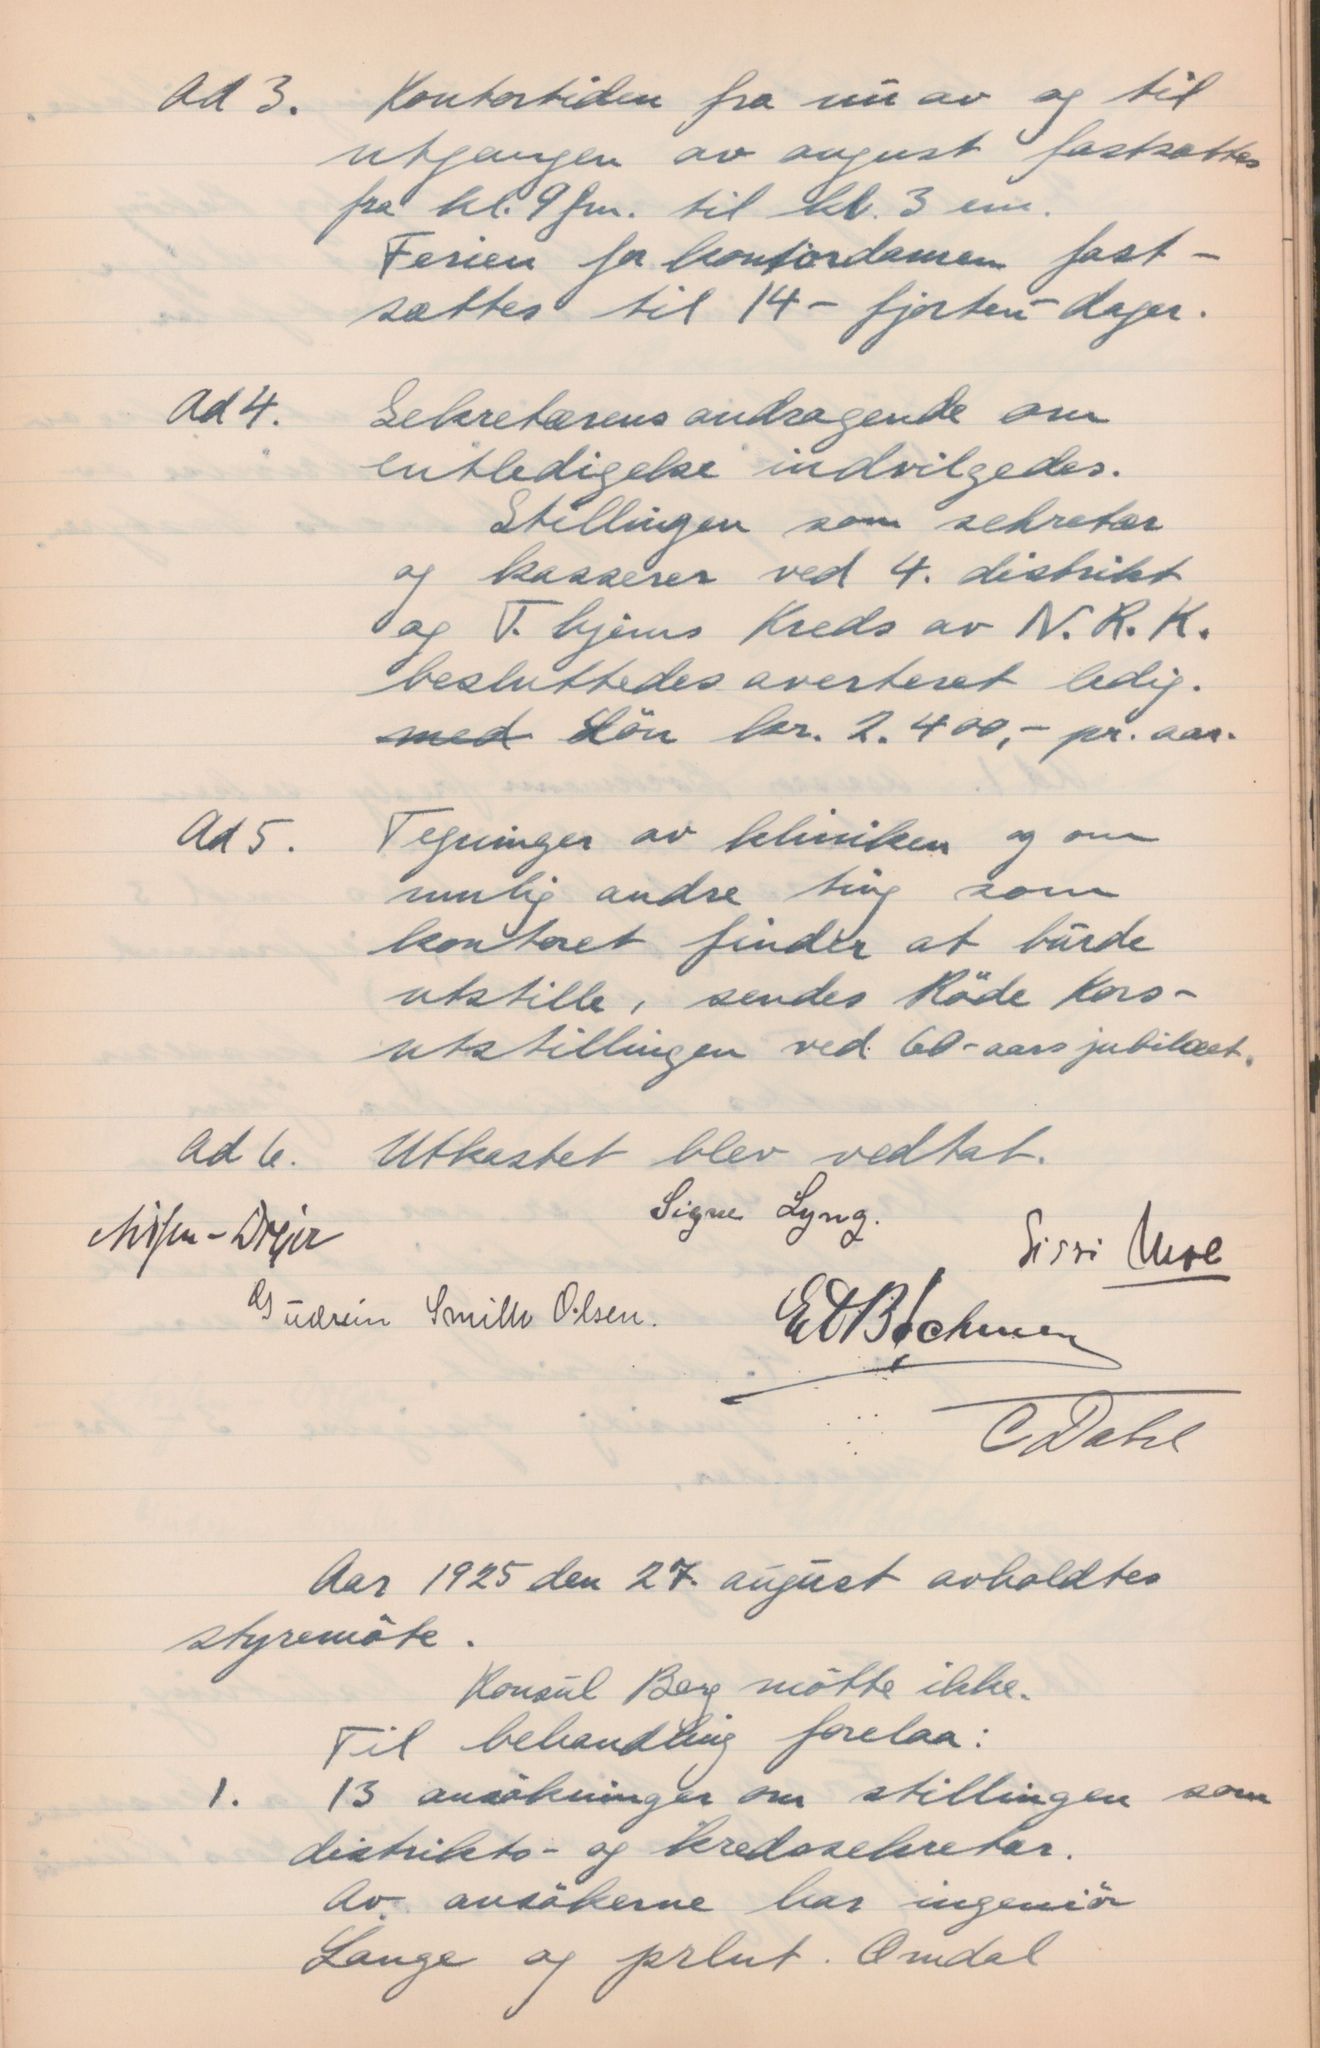 Ad 3. Kontortiden fra nu av og til
utgangen av august fastsættes
fra kl. 9 fm. til kl. 3 em.
Ferien for kontordamen fast-
sættes til 14 - fjorten - dager.
Ad 4. Sekretærens andragende om
entledigelse indvilgedes.
Stillingen som sekretær
og kasserer ved 4. distrikt
og T. hjems Kreds av N. R. K.
besluttedes averteret ledig.
med Lön kr. 2.400,- pr. aar.
Ad 5. Tegninger av kliniken og om
mulig andre ting som
kontoret finder at burde
utstille, sendes Röde Kors-
utstillingen ved 60-aars jubilæet.
Ad 6. Utkastet blev vedtat.
Signe Lyng.
Sissi
Gudrun Smith Olsen.
C Dahl
Aar 1925 den 27. august avholdtes
styremöte.
Konsul Berg mötte ikke.
Til behandling forelaa:
1. 13 ansökninger om stillingen som
distrikts- og kredssekretær.
Av ansökerne har ingeniör
Lange og prlnt. Omdal